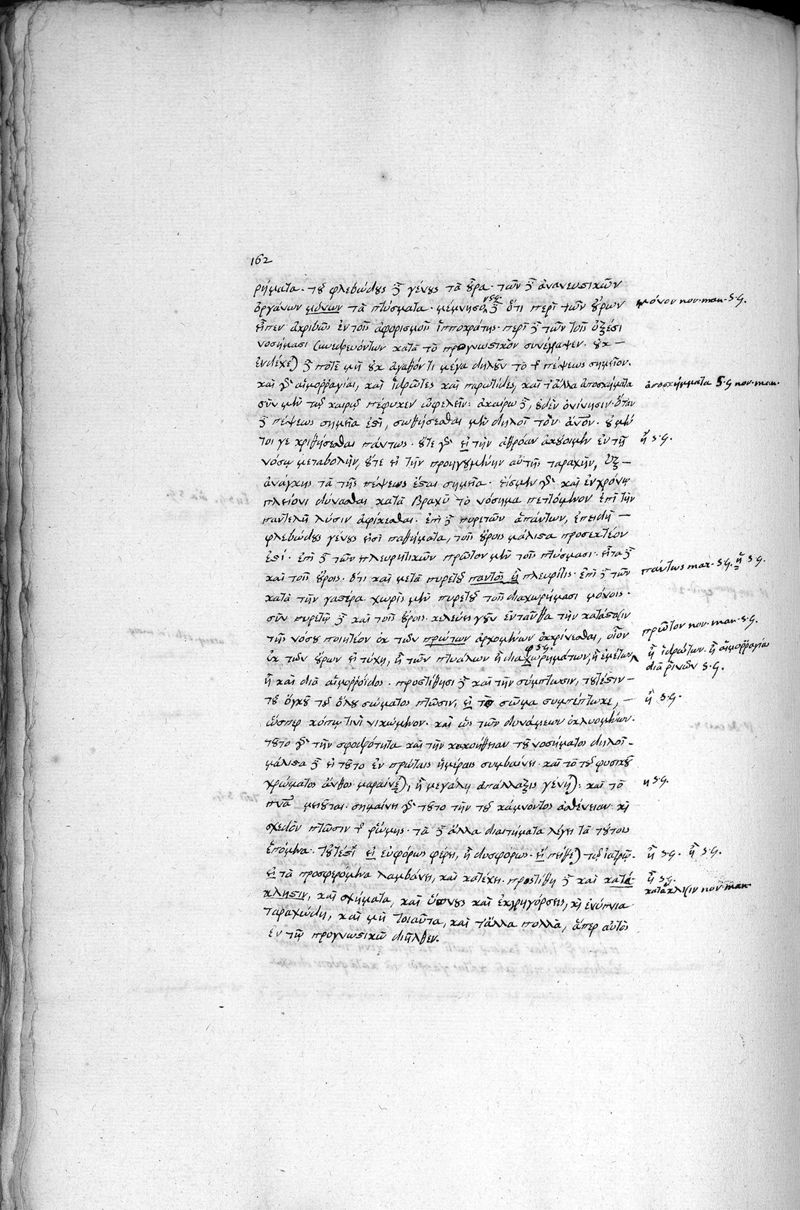 162
ρήματα· τοῦ φλεβώδους δὲ γένους τὰ οὖρα· τῶν δὲ ἀναπνευστικῶν
ὀργάνων μόνων τὰ πτύσματα· μέμνησο δὲ ὅτι περὶ τῶν οὔρων μόνον nov. man. S.G.
εἶπεν ἀκριβῶς ἐν τοῖς ἀφορισμοῖς ἱπποκράτης· περὶ δὲ τῶν τοῖς ὀξέσι
νοσήμασι συνεδρευόντων κατὰ τὸ προγνωστικὸν συνέγραψεν· οὐκ
ἐνδέχεται δὲ ποτὲ μὴ οὐκ ἀγαθόν τι μέγα δηλοῦν τὸ τῆς πέψεως σημεῖον·
καὶ γὰρ αἱμορραγίαι, καὶ ἱδρῶτες καὶ παρωτίδες, καὶ τἄλλα ἀποσκήματα ἀποσκήμματα S.G nov. man.
σὺν μὲν τοῖς καιροῖς πέφυκεν ὠφελεῖν· ἀκαίρως δὲ, οὐδὲν ὀνίνησιν· ὅταν
δὲ πέψεως σημεῖα ἐπῇ, σωθήσεσθαι μὲν δηλοῖ τὸν ἄνον· οὐ μέν
τοι γε κριθήσεσθαι πάντως· οὔτε γὰρ εἰ τὴν ἀθρόαν ἀκούοιμεν ἐν τῇ ἢ S.G.
νόσῳ μεταβολὴν, οὔτε εἰ τὴν προηγουμένην αὐτῆς ταραχὴν, ἐξ
ἀνάγκης τὰ τῆς πέψεως ἔσται σημεῖα· ἴσμεν γὰρ καὶ ἐν χρόνῳ
πλείονι δύνασθαι κατὰ βραχὺ τὸ νόσημα πεττόμενον ἐπὶ τὴν
παντελῆ λύσιν ἀφικέσθαι· ἐπὶ δὲ πυρετῶν ἁπάντων, ἐπειδὴ
φλεβώδους γένους εἰσὶ παθήματα, τοῖς οὔροις μάλιστα προσεκτέον
ἐστί· ἐπὶ δὲ τῶν πλευριτικῶν πρῶτον μὲν τοῖς πτύσμασι· εἶτα δὲ
καὶ τοῖς οὔροις· ὅτι καὶ μετὰ πυρετοῦ παντὸς εἰ πλευρῖτις· ἐπὶ δὲ τῶν πάντως mar. S.G. ἡ S.G.
κατὰ τὴν γαστέρα χωρὶς μὲν πυρετοῦ τοῖς διαχωρήμασι μόνοις·
σὺν πυρετῷ δὲ καὶ τοῖς οὔροις· κελεύει γοῦν ἐνταῦθα τὴν κατάστασιν
τῆς νόσου ποιητέον ἐκ τῶν πρώτων ἀρχομένων ἐκκρίνεσθαι, οἷον πρῶτον nov. man. S.G.
ἐκ τῶν οὔρων εἰ τύχῃ, ἢ τῶν πτυάλων ἢ διαχωρημάτων, ἢ ἐμέτων ἢ ἱδρώτων. ἢ αἱμορραγία
ἢ καὶ διὰ αἱμορροΐδος· προστίθησι δὲ καὶ τὴν σύμπτωσιν, τουτέστιν διὰ ῥινῶν S.G.
τοῦ ὄγκου τοῦ ὅλου σώματος πτῶσιν, εἰ τὸ σῶμα συμπέπτωκε, ἢ S.G.
ὥσπερ κόπῳ τινὶ νικώμενον· καὶ ὡς τῶν δυνάμεων ἐκλυομένων·
τοῦτο γὰρ τὴν σφοδρότητα καὶ τὴν κακοήθειαν τοῦ νοσήματος δηλοῖ·
μάλιστα δὲ εἰ τοῦτο ἐν πρώταις ἡμέραις συμβαίνει· καὶ τὸ τοῦ φυσικοῦ
χρώματος ἄνθος μαραίνεται, ἢ μεγάλη ἀπάλλαξις γένηται· καὶ τὸ η S.G.
πνᾶ μειοῦται· σημαίνει γὰρ τοῦτο τὴν τοῦ κάμνοντος ἀσθένειαν καὶ
σχεδὸν πτῶσιν τῆς ῥώμης· τὰ δὲ ἄλλα διαιτήματα λέγει τὰ τούτοις
ἑπόμενα· τουτέστι εἰ εὐφόρως φέρει, ἢ δυσφόρως· εἰ πείθεται τῷ ἰατρῷ· ἢ S.G. ἢ S.G.
εἰ τὰ προσφερόμενα λαμβάνει, καὶ κατέχει· προστίθει δὲ καὶ κατά ἢ S.G.
κλησιν, καὶ σχήματα, καὶ ὕπνους καὶ ἐκγρηγόρσεις, καὶ ἐνύπνια κατάκλισιν nov. man.
ταραχώδη, καὶ μὴ τοιαῦτα, καὶ τἄλλα πολλὰ, ἅπερ αὐτὸς
ἐν τῷ προγνωστικῷ διῆλθεν.